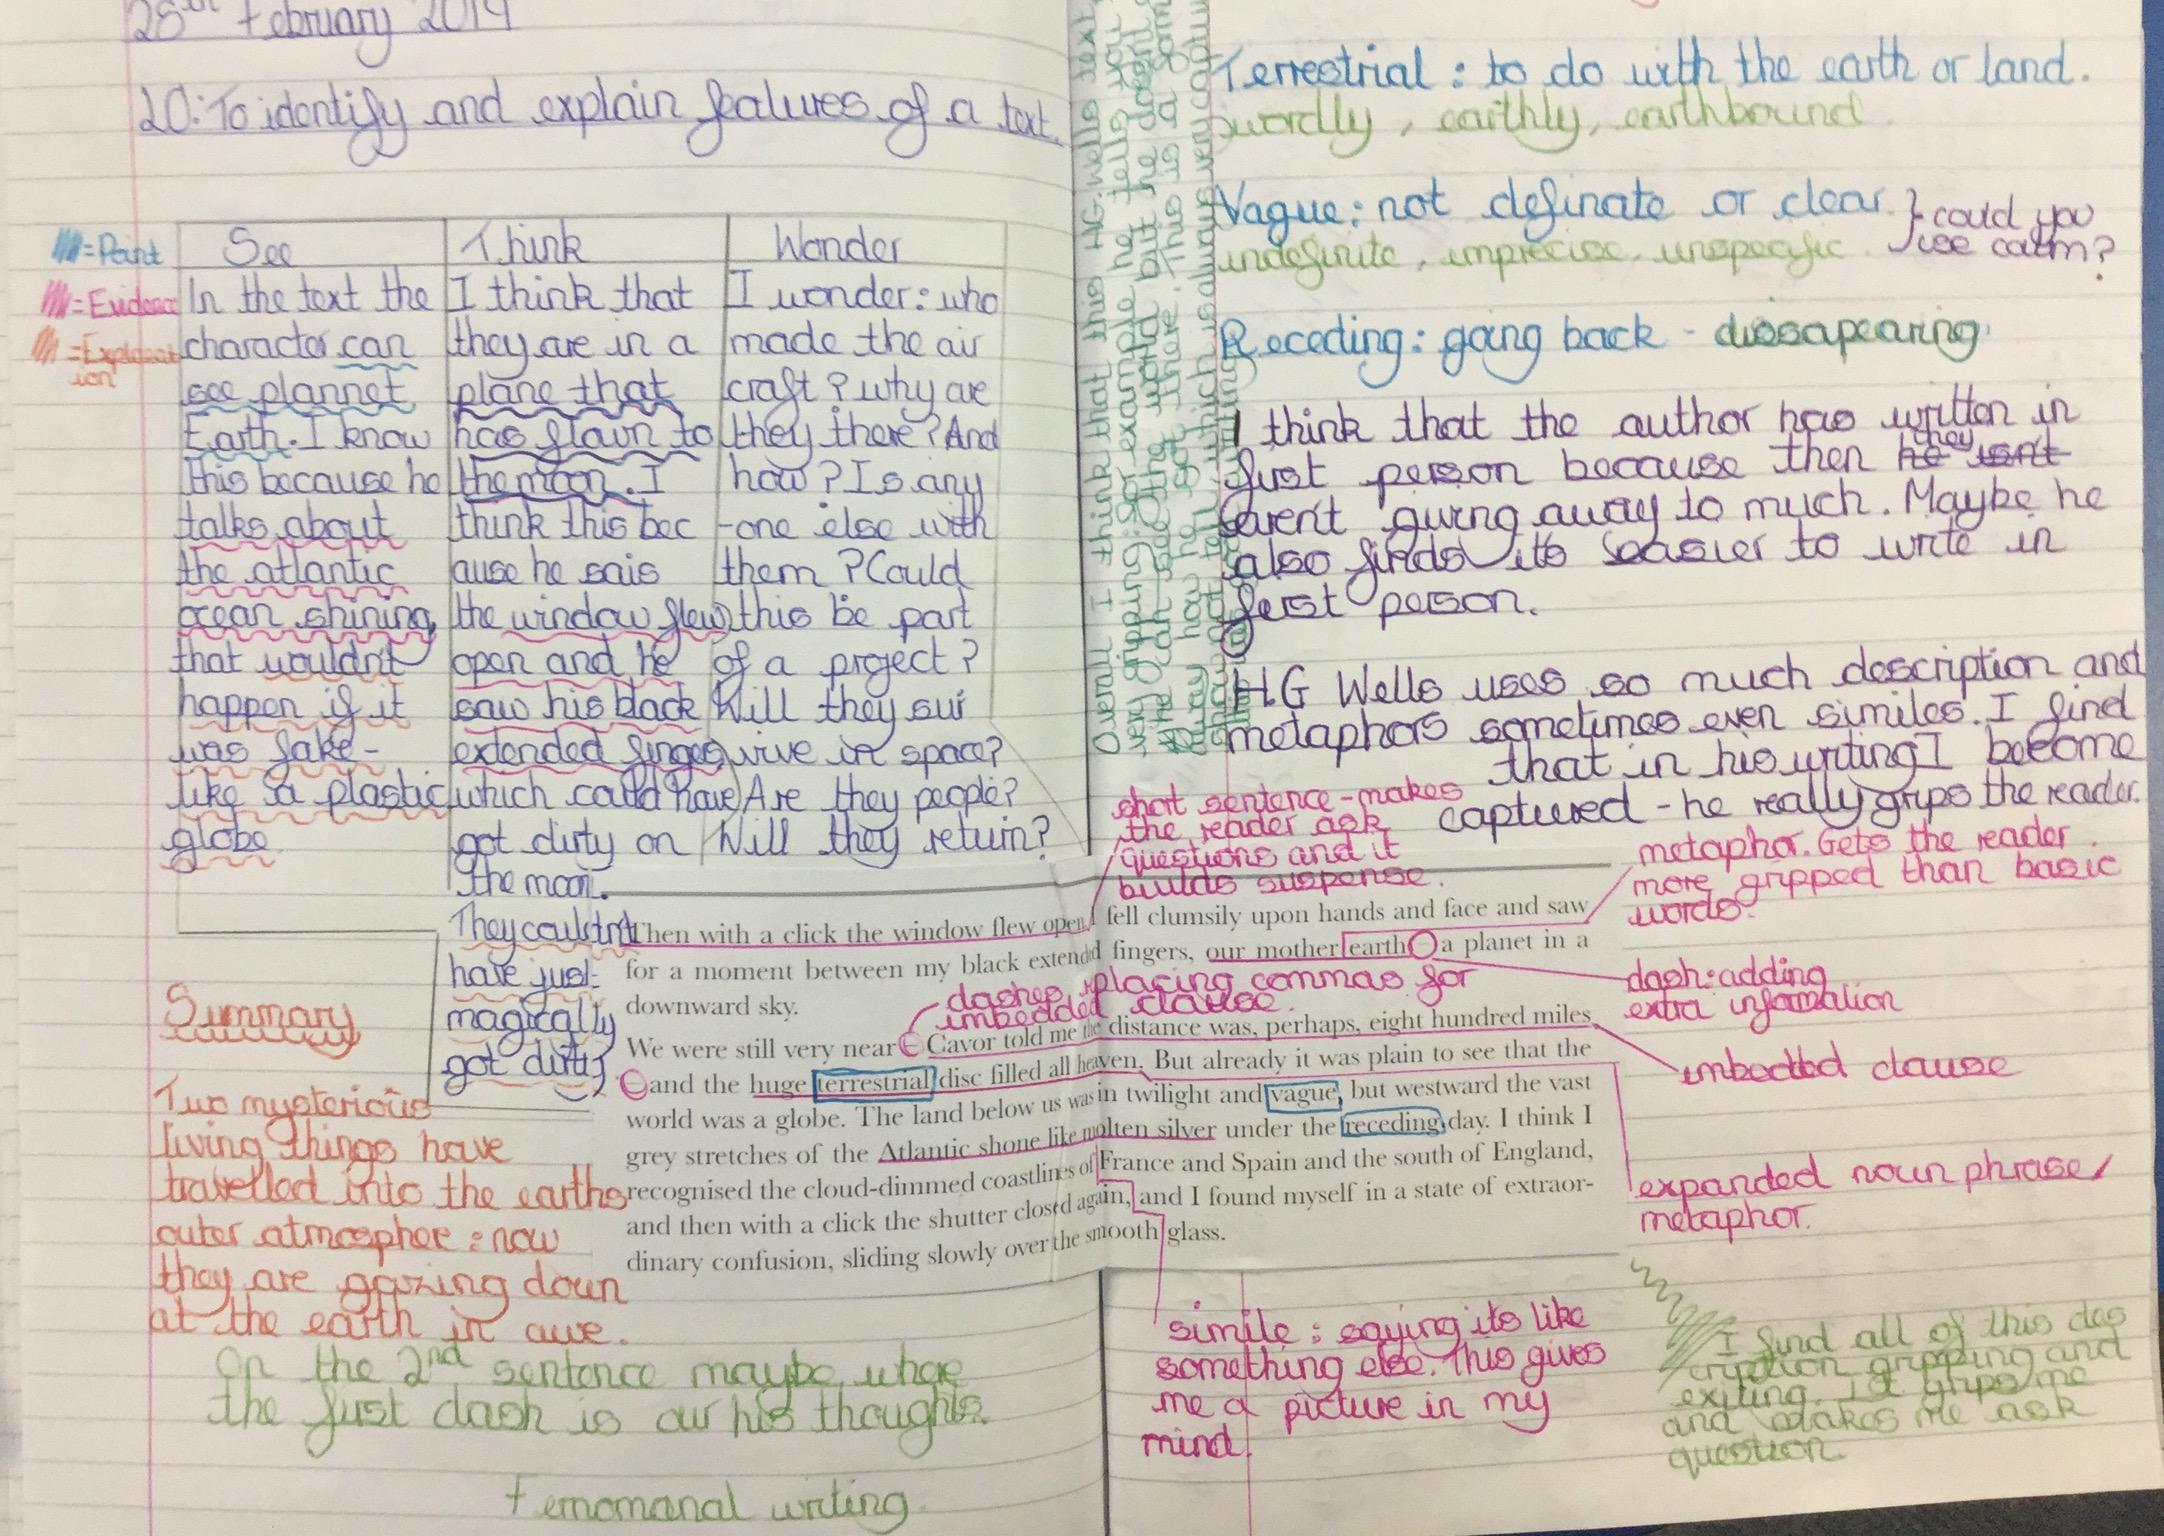 28th February 2019
LO: To identify and explain features of a text.
= Point
= Evidence
= Explanat
ion
See
In the text the
character can
see plannet
Earth. I know
this because he
talks about
the atlantic
ocean shining,
that wouldn't
happen if it
was fake -
like a plastic
globe.
Think
I think that
they are in a
plane that
has flown to
the moon. I
think this bec
ause he sais
the window flew
open and he
saw his black
extended finges
which could have
got dirty on
the moon.
They couldn't
have just
magically
got dirty
Wonder
I wonder: who
made the air
craft? why are
they there? And
how? Is any
-one else with
them? Could
this be part
of a project?
Will they sur
vive in space?
Are they people?
Will they return?
Summary
Two mysterious
living things have
travelled into the earths
outer atmosphere: now
they are gazing down
at the earth in awe.
On the 2nd sentence maybe where
the first dash is our his thoughts.
writing.
Overall I think that this HG. Wells text
very gripping: for example he tells you
he can see the world but he doesn't
say how he got there. This is a
Terrestrial: to do with the earth or land.
wordly, earthly, earthbound
Vague: not definate or clear.
indefinite, imprecise, unspecific
could you
use calm?
Receding: going back - dissapearing
I think that the author has written in
first person because then he isn't they
arent giving away to much. Maybe he
also finds its easier to write in
ferst person.
HG Wells uses so much description and
metaphors sometimes even similes. I find
that in his writing I become
captured - he really grips the reader.
short sentence - makes
the reader ask
questions and it
builds suspense.
metaphor. Gets the reader
more gripped than basic
words.
Then with a click the window flew open. I fell clumsily upon hands and face and saw
for a moment between my black extended fingers, our mother earth – a planet in a
downward sky.
dashes replacing commas for
imbedded clause.
dash: adding
extra information
We were still very near – Cavor told me the distance was, perhaps, eight hundred miles
– and the huge terrestrial disc filled all heaven. But already it was plain to see that the
world was a globe. The land below us was in twilight and vague, but westward the vast
grey stretches of the Atlantic shone like molten silver under the receding day. I think I
recognised the cloud-dimmed coastlines of France and Spain and the south of England,
and then with a click the shutter closed again, and I found myself in a state of extraor-
dinary confusion, sliding slowly over the smooth glass.
imbedded clause
expanded noun phrase/
metaphor.
simile: saying its like
something else. This gives
me a picture in my
mind.
I find all of this des
cryption gripping and
exiting. It grips me
and makes me ask
question.